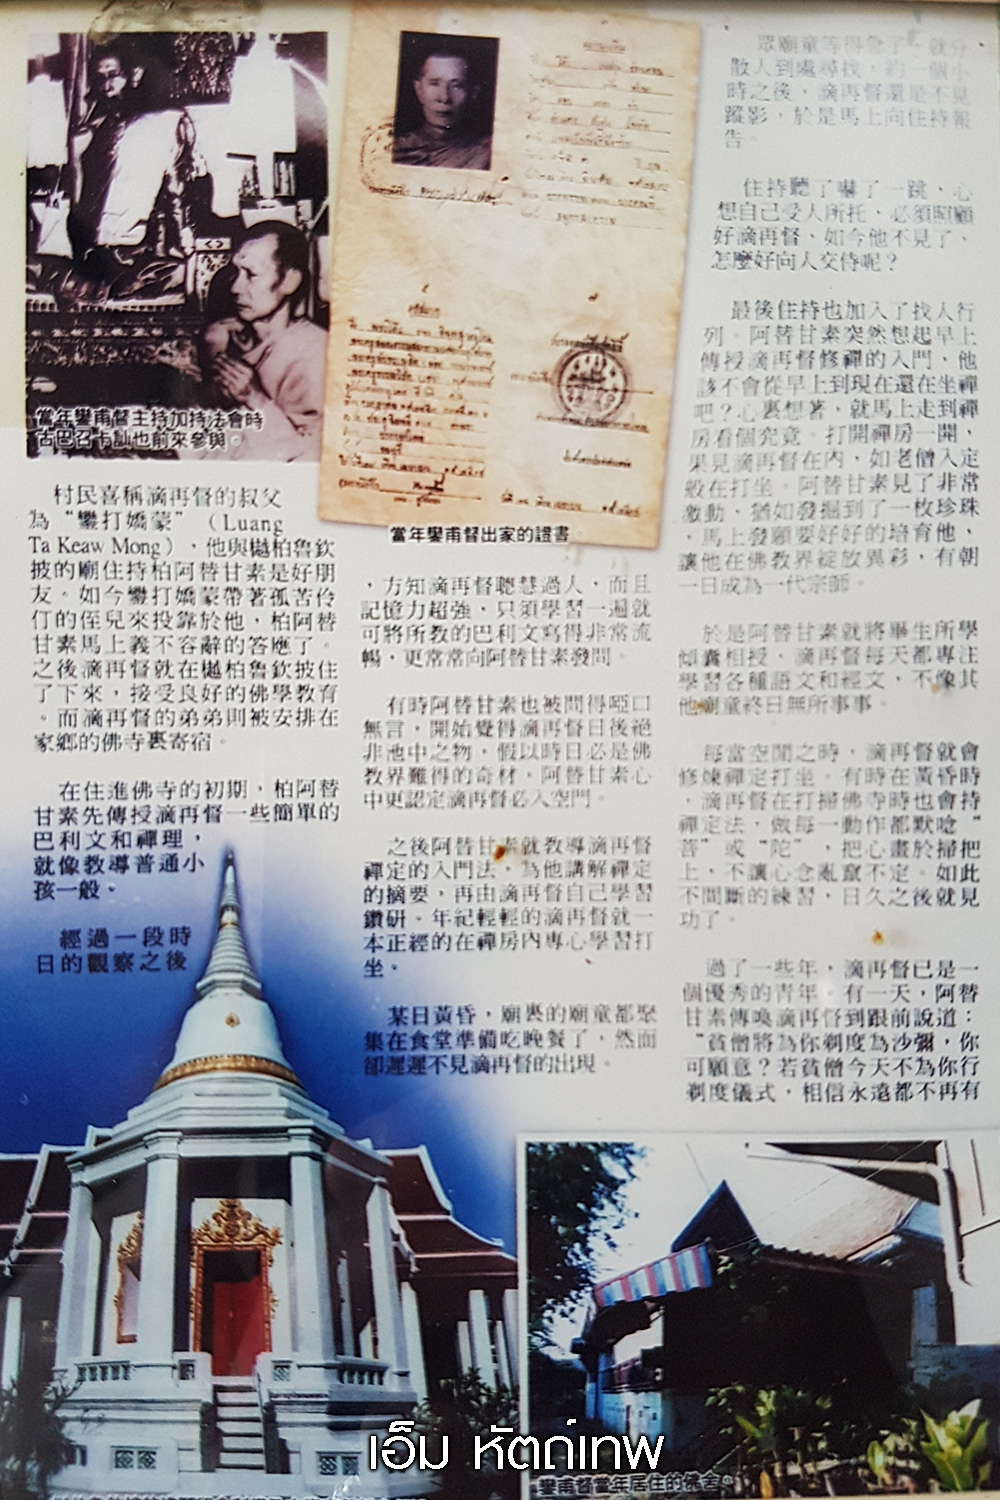 當年鑾甫督主持加持法會時
古巴召卡訕也前來參與。
當年鑾甫督出家的證書。
村民喜稱滴再督的叔父
為“鑾打嬌蒙”（Luang
Ta Keaw Mong），他與樾柏魯欽
披的廟住持柏阿替甘素是好朋
友。如今鑾打嬌蒙帶著孤苦伶
仃的侄兒來投靠於他，柏阿替
甘素馬上義不容辭的答應了。
之後滴再督就在樾柏魯欽披住
了下來，接受良好的佛學教育
。而滴再督的弟弟則被安排在
家鄉的佛寺裏寄宿。
在住進佛寺的初期，柏阿替
甘素先傳授滴再督一些簡單的
巴利文和禪理，
就像教導普通小
孩一般。
經過一段時
日的觀察之後
，方知滴再督聰慧過人，而且
記憶力超強，只須學習一遍就
可將所教的巴利文寫得非常流
暢，更常常向阿替甘素發問。
有時阿替甘素也被問得啞口
無言，開始覺得滴再督日後絕
非池中之物，假以時日必是佛
教界難得的奇材，阿替甘素心
中更認定滴再督必入空門。
之後阿替甘素就教導滴再督
禪定的入門法，為他講解禪定
的摘要，再由滴再督自己學習
鑽研。年紀輕輕的滴再督就一
本正經的在禪房內專心學習打
坐。
某日黃昏，廟裏的廟童都聚
集在食堂準備吃晚餐了，然而
卻遲遲不見滴再督的出現。
眾廟童等得急了，就分
散人到處尋找，約一個小
時之後，滴再督還是不見
蹤影，於是馬上向住持報
告。
住持聽了嚇了一跳，心
想自己受人所托，必須照顧
好滴再督，如今他不見了，
怎麼好向人交待呢？
最後住持也加入了找人行
列。阿替甘素突然想起早上
傳授滴再督修禪的入門，他
該不會從早上到現在還在坐禪
吧？心裏想著，就馬上走到禪
房看個究竟。打開禪房一開，
果見滴再督在內，如老僧入定
般在打坐。阿替甘素見了非常
激動，猶如發掘到了一枚珍珠
，馬上發願要好好的培育他，
讓他在佛教界綻放異彩，有朝
一日成為一代宗師。
於是阿替甘素就將畢生所學
傾囊相授，滴再督每天都專注
學習各種語文和經文，不像其
他廟童終日無所事事。
每當空閒之時，滴再督就會
修煉禪定打坐。有時在黃昏時
，滴再督在打掃佛寺時也會持
禪定法，做每一動作都默唸“
菩”或“陀”，把心畫於掃把
上，不讓心念亂竄不定。如此
不間斷的練習，日久之後就見
功了。
過了一些年，滴再督已是一
個優秀的青年。有一天，阿替
甘素傳喚滴再督到跟前說道：
“貧僧將為你剃度為沙彌，你
可願意？若貧僧今天不為你行
剃度儀式，相信永遠都不再有
鑾甫督當年居住的佛舍。
เอ็ม หัตถ์เทพ